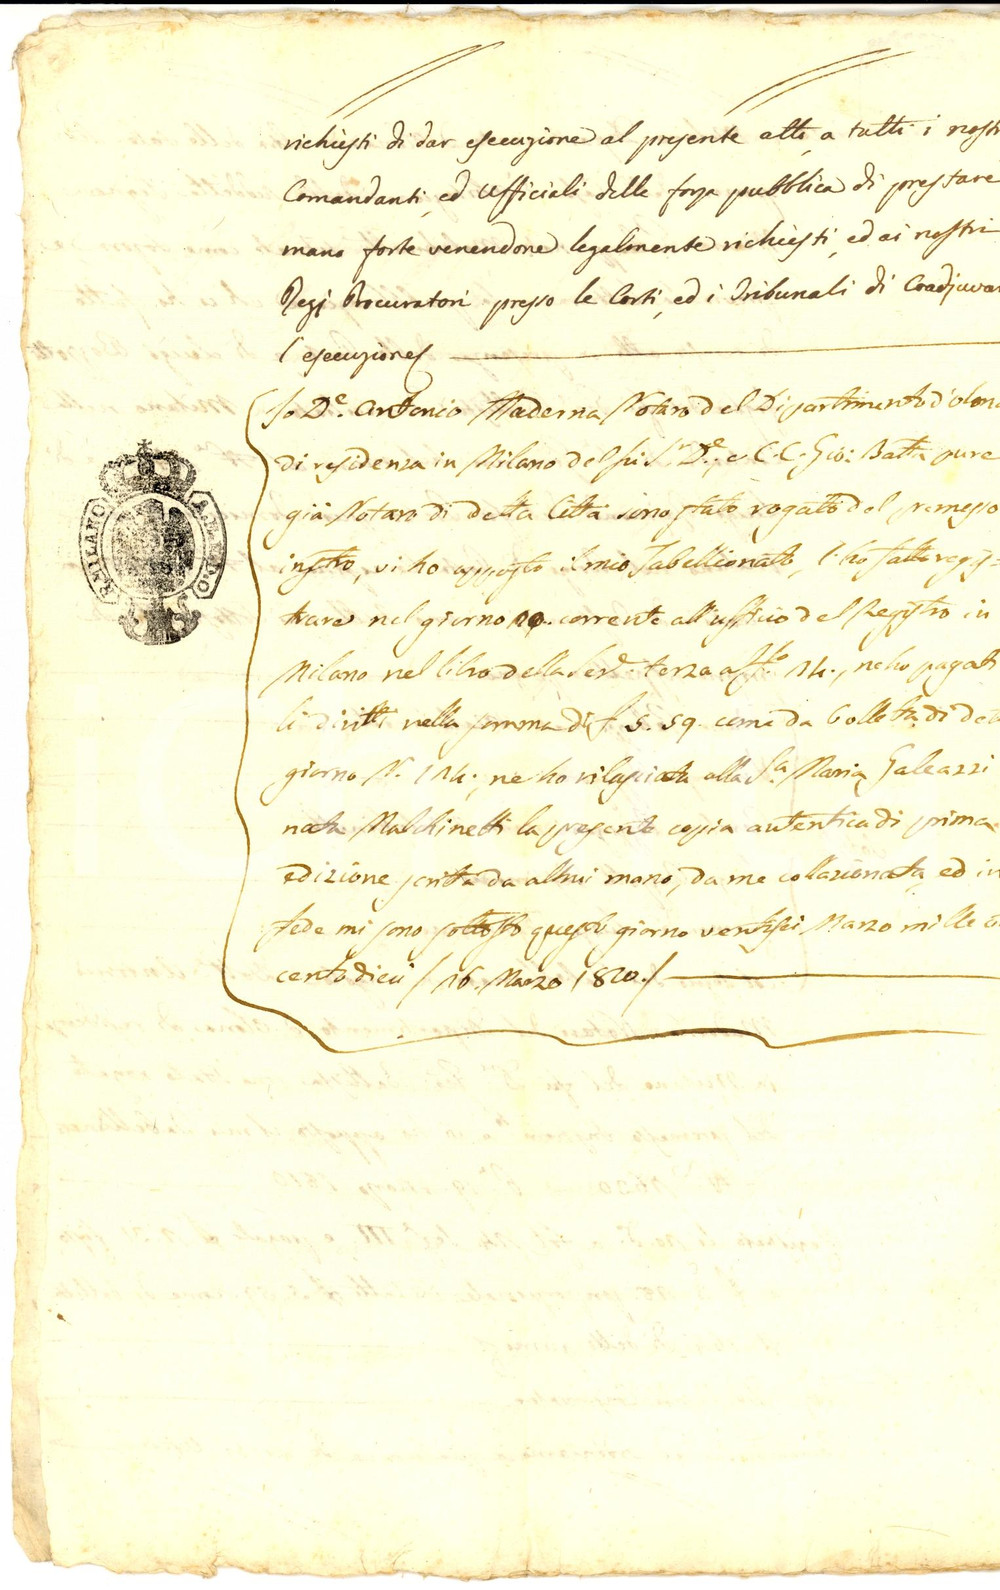 richiesti di dar esecuzione al presente atto, a tutti i nostri
Comandanti, ed Ufficiali della forza pubblica di prestare
mano forte venendone legalmente richiesti, ed ai nostri
Regj Procuratori presso le Corti, ed i Tribunali di Coadjuvar
l'esecuzione
Io Dr. Antonio Maderna Notaro del Dipartimento d'Olona
di residenza in Milano del fu Sr. Dr., e C. C. Gio: Batta pure
già Notaro di detta Città sono stato rogato del premesso
instro, vi ho apposto il mio Tabellionato, l'ho fatto regis=
trare nel giorno corrente all'ufficio del Registro in
Milano nel libro della Serie terza 14., ne ho pagati
li diritti nella somma di £ 5. 59. come da bolletta di detto
giorno N. 114., ne ho rilasciata alla Sa. Maria Galeazzi
nata Malchinetti la presente copia autentica di prima
edizione scritta da altrui mano, da me collazionata, ed in
fede mi sono sottosto questo giorno ventisei Marzo mille ot
cento dieci / 26. Marzo 1810. /
MILANO